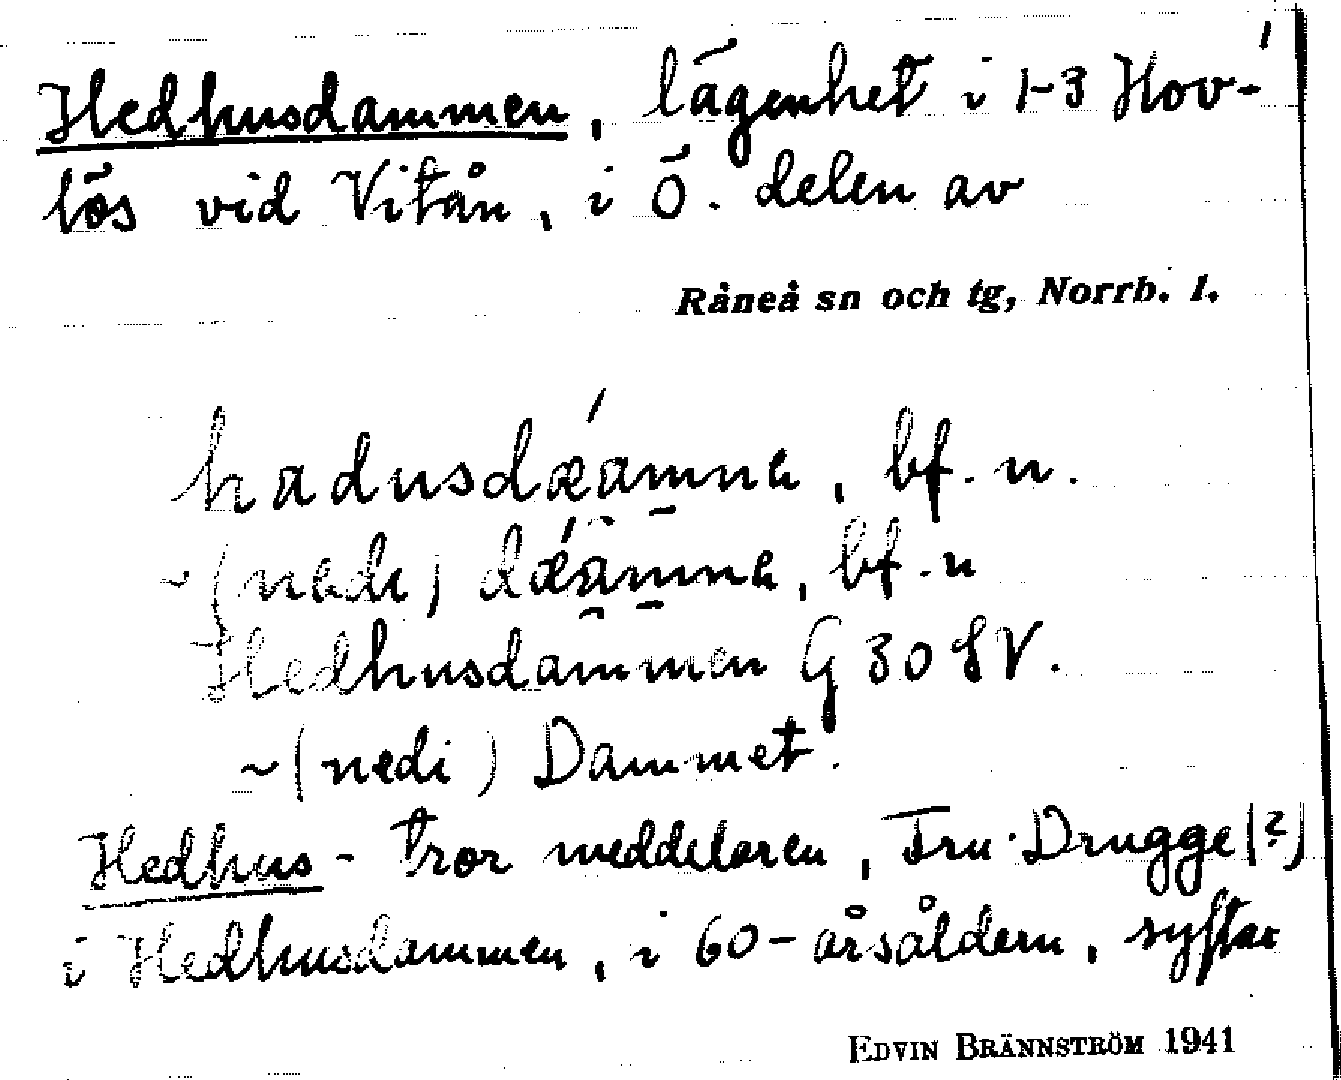 Hedhusdammen, lägenhet i 1-3 Hov-
lös vid Vitån, i Ö. delen av
Råneå sn och tg, Norrb. l.
hadusdǽamna, bf. n.
~ (nedi) dǽamna, bf. n
Hedhusdammen G 30 SV.
~ (nedi) Dammet.
Hedhus - tror meddelaren, Fru Drugge (?)
i Hedhusdammen, i 60-årsåldern, syftar
EDVIN BRÄNNSTRÖM 1941